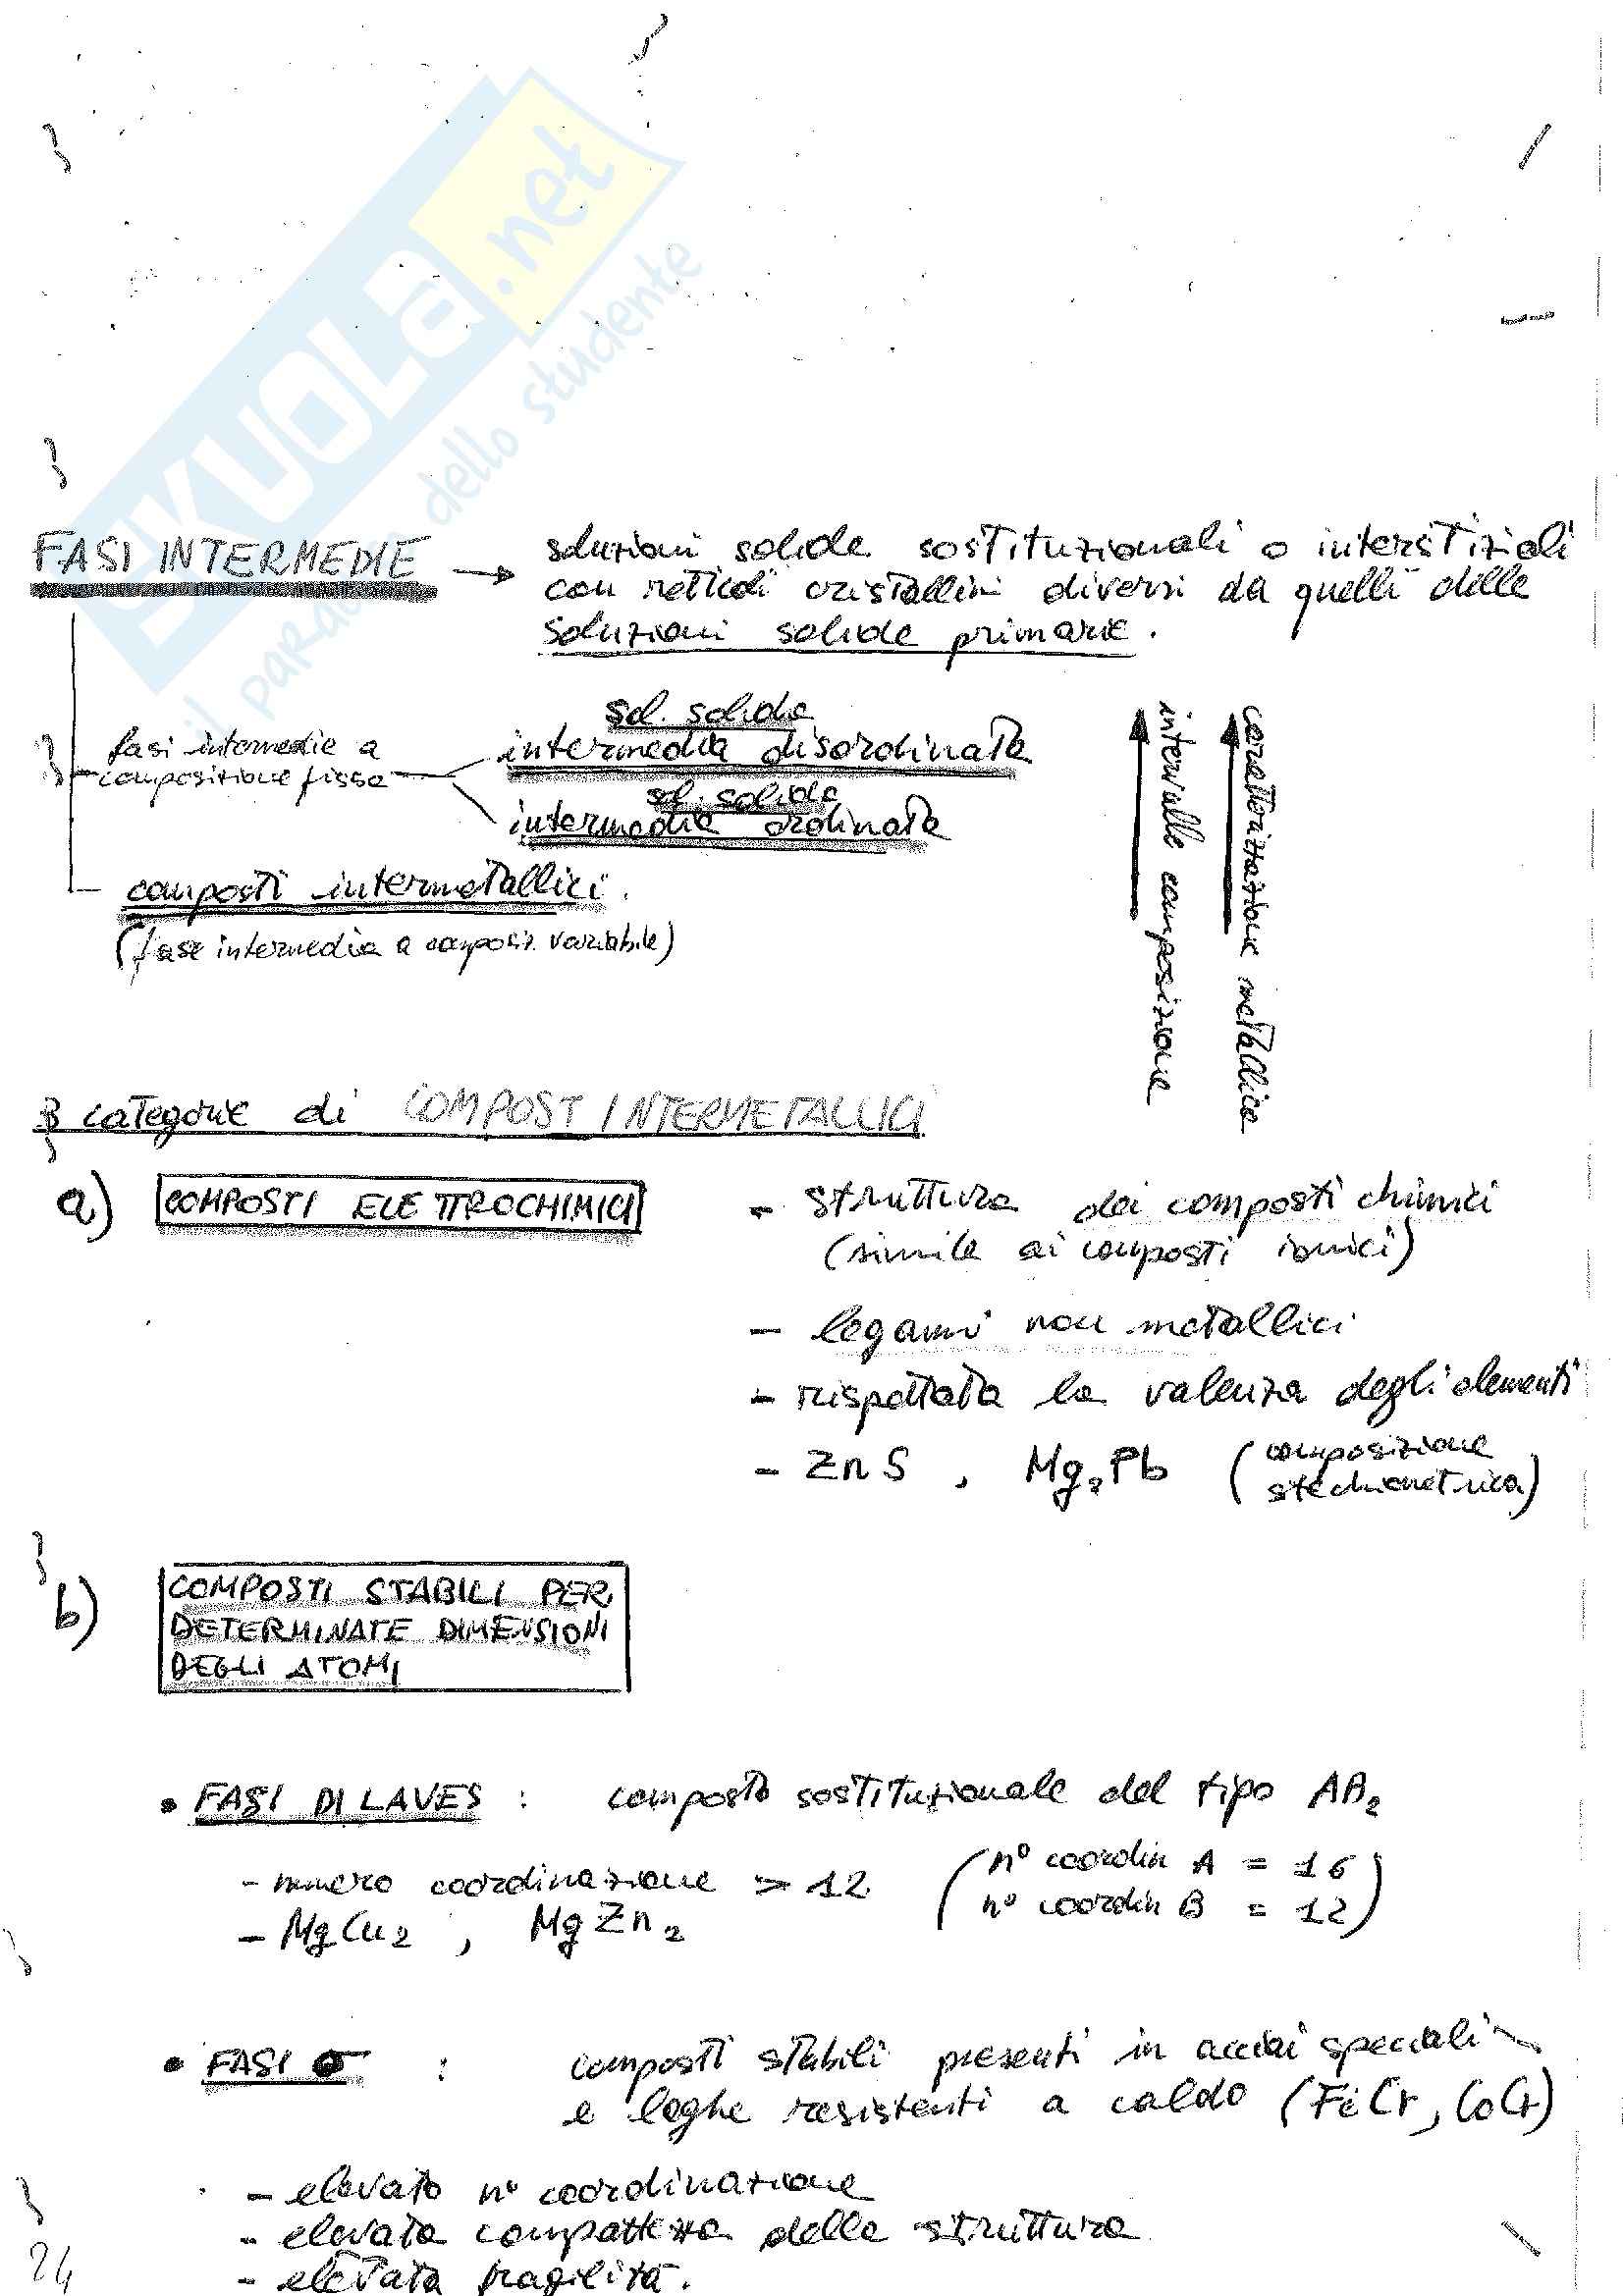 SKUOLA.net
il paradiso dello studente
FASI INTERMEDIE → soluzioni solide sostituzionali o interstiziali
con reticoli cristallini diversi da quelli delle
soluzioni solide primarie.
fasi intermedie a
composizione fissa
sol. solida
intermedia disordinata
sol. solida
intermedia ordinata
composti intermetallici.
(fase intermedia a composiz. variabile)
intervallo composizione
caratterizzazione metallica
3 categorie di COMPOSTI INTERMETALLICI
a) COMPOSTI ELETTROCHIMICI
- struttura dei composti chimici
(simile ai composti ionici)
- legami non metallici
- rispettata la valenza degli elementi
- ZnS , Mg₂Pb (composizione
stechiometrica)
b) COMPOSTI STABILI PER
DETERMINATE DIMENSIONI
DEGLI ATOMI
• FASI DI LAVES : composto sostituzionale del tipo AB₂
- numero coordinazione > 12 (n° coordin A = 16
n° coordin B = 12)
- MgCu₂ , MgZn₂
• FASI σ : composti stabili presenti in acciai speciali
e leghe resistenti a caldo (FeCr, CoCr)
- elevato n° coordinazione
- elevata compattezza della struttura
- elevata fragilità.
24